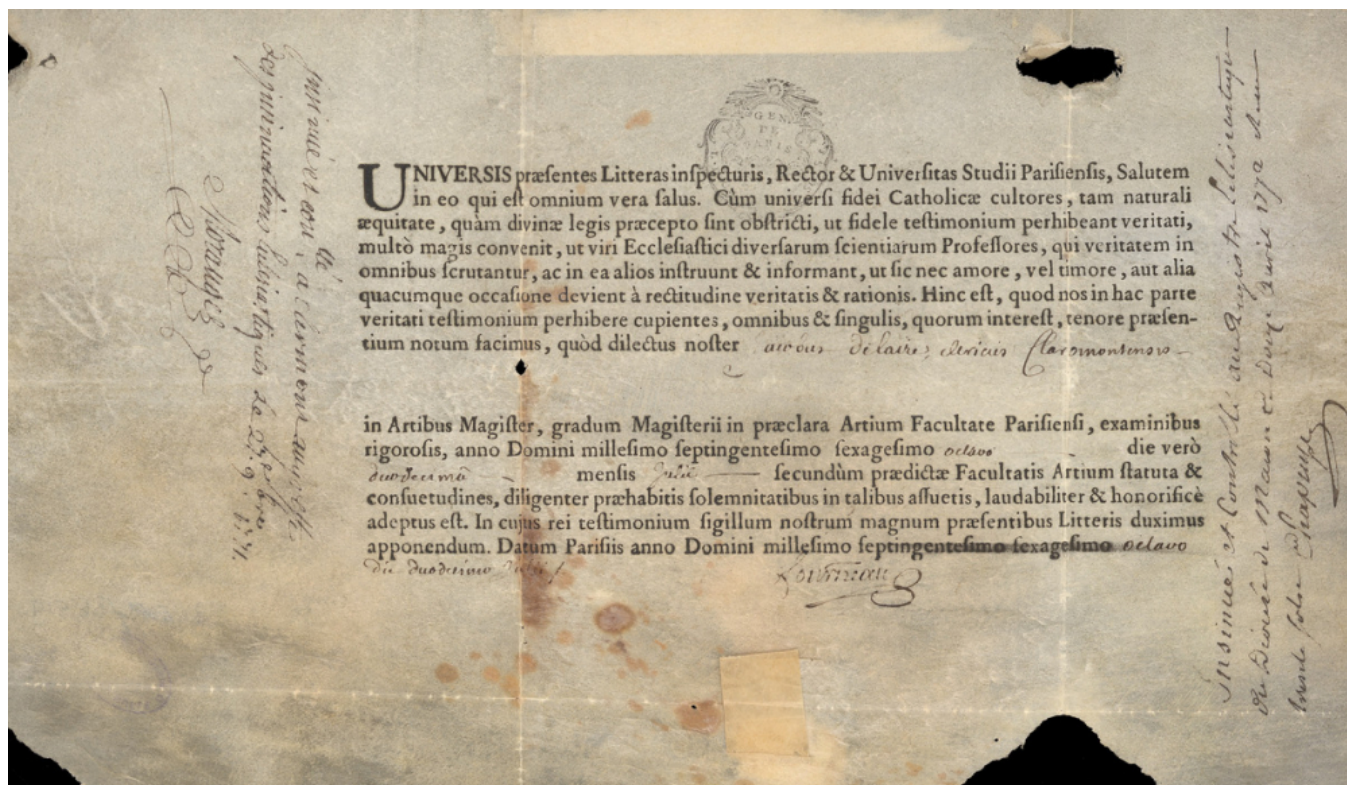 GEN
DE
PARIS
UNIVERSIS præsentes Litteras inspecturis, Rector & Universitas Studii Parisiensis, Salutem
in eo qui est omnium vera salus. Cùm universi fidei Catholicæ cultores, tam naturali
æquitate, quàm divinæ legis præcepto sint obstricti, ut fidele testimonium perhibeant veritati,
multò magis convenit, ut viri Ecclesiastici diversarum scientiarum Professores, qui veritatem in
omnibus scrutantur, ac in ea alios instruunt & informant, ut sic nec amore, vel timore, aut alia
quacumque occasione devient à rectitudine veritatis & rationis. Hinc est, quod nos in hac parte
veritati testimonium perhibere cupientes, omnibus & singulis, quorum interest, tenore præsen-
tium notum facimus, quòd dilectus noster delaire, clericus Claromontensis
in Artibus Magister, gradum Magisterii in præclara Artium Facultate Parisiensi, examinibus
rigorosis, anno Domini millesimo septingentesimo sexagesimo octavo die verò
duodecimâ mensis julii secundùm prædictæ Facultatis Artium statuta &
consuetudines, diligenter præhabitis solemnitatibus in talibus assuetis, laudabiliter & honorificè
adeptus est. In cujus rei testimonium sigillum nostrum magnum præsentibus Litteris duximus
apponendum. Datum Parisiis anno Domini millesimo septingentesimo sexagesimo octavo
die duodecimo julii
Insinué et Controllé au Registre
du Diocese de le Douze avril 1772